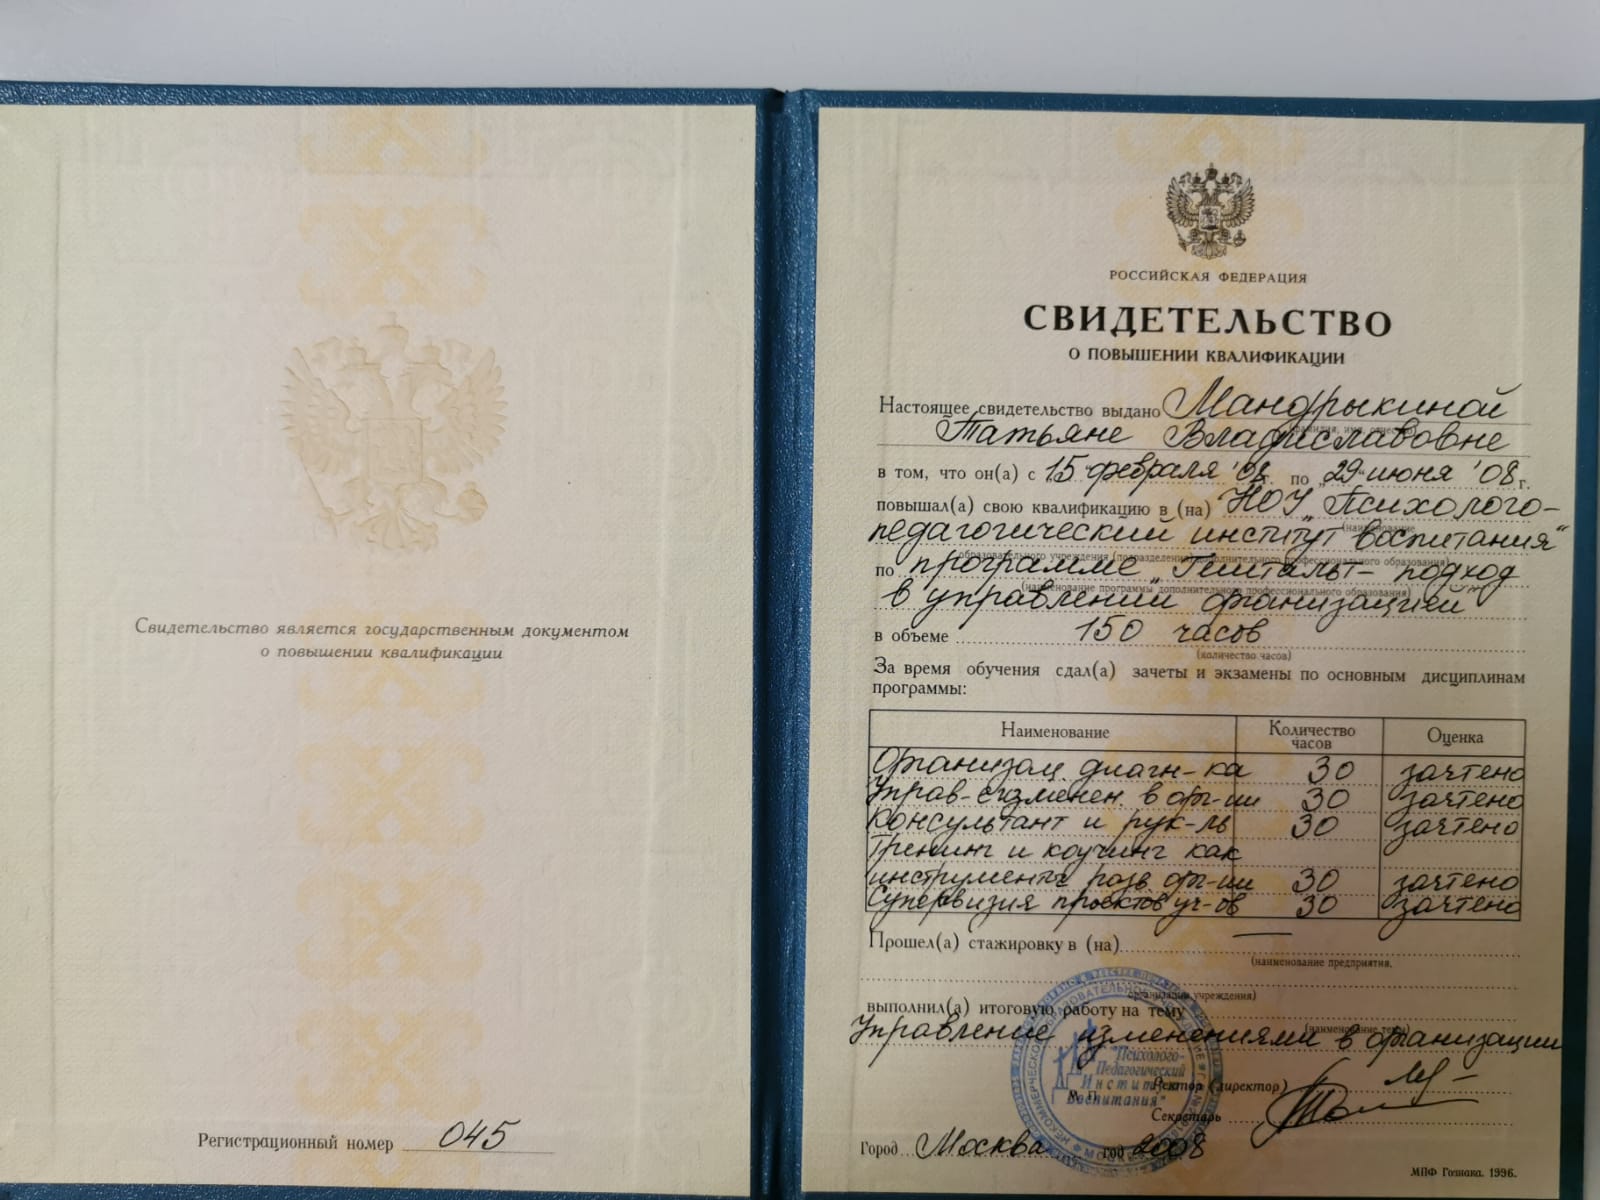 Свидетельство является государственным документом
о повышении квалификации
Регистрационный номер 045
РОССИЙСКАЯ ФЕДЕРАЦИЯ
СВИДЕТЕЛЬСТВО
О ПОВЫШЕНИИ КВАЛИФИКАЦИИ
Настоящее свидетельство выдано Мандрыкиной
Татьяне Владиславовне
в том, что он(а) с 15 февраля '08 г. по „29" июня '08 г.
повышал(а) свою квалификацию в (на) НОУ „Психолого-
(наименование
педагогический институт воспитания"
образовательного учреждения (подразделения) дополнительного профессионального образования)
по программе „Гештальт-подход
(наименование программы дополнительного профессионального образования)
в управлении организацией"
в объеме 150 часов
(количество часов)
За время обучения сдал(а) зачеты и экзамены по основным дисциплинам
программы:
Наименование Количество часов Оценка
Организац. диагн-ка 30 зачтено
Управ. изменен. в орг-ии 30 зачтено
Консультант и рук-ль 30 зачтено
Тренинг и коучинг как
инструменты разв. орг-ии 30 зачтено
Супервизия проектов уч-ов 30 зачтено
Прошел(а) стажировку в (на) —
(наименование предприятия,
организации, учреждения)
выполнил(а) итоговую работу на тему
(наименование темы)
Управление изменениями в организации
"Психолого-
Педагогический
Институт
Воспитания"
М. П.
Ректор (директор)
Секретарь
Город Москва год 2008
МПФ Гознака. 1996.